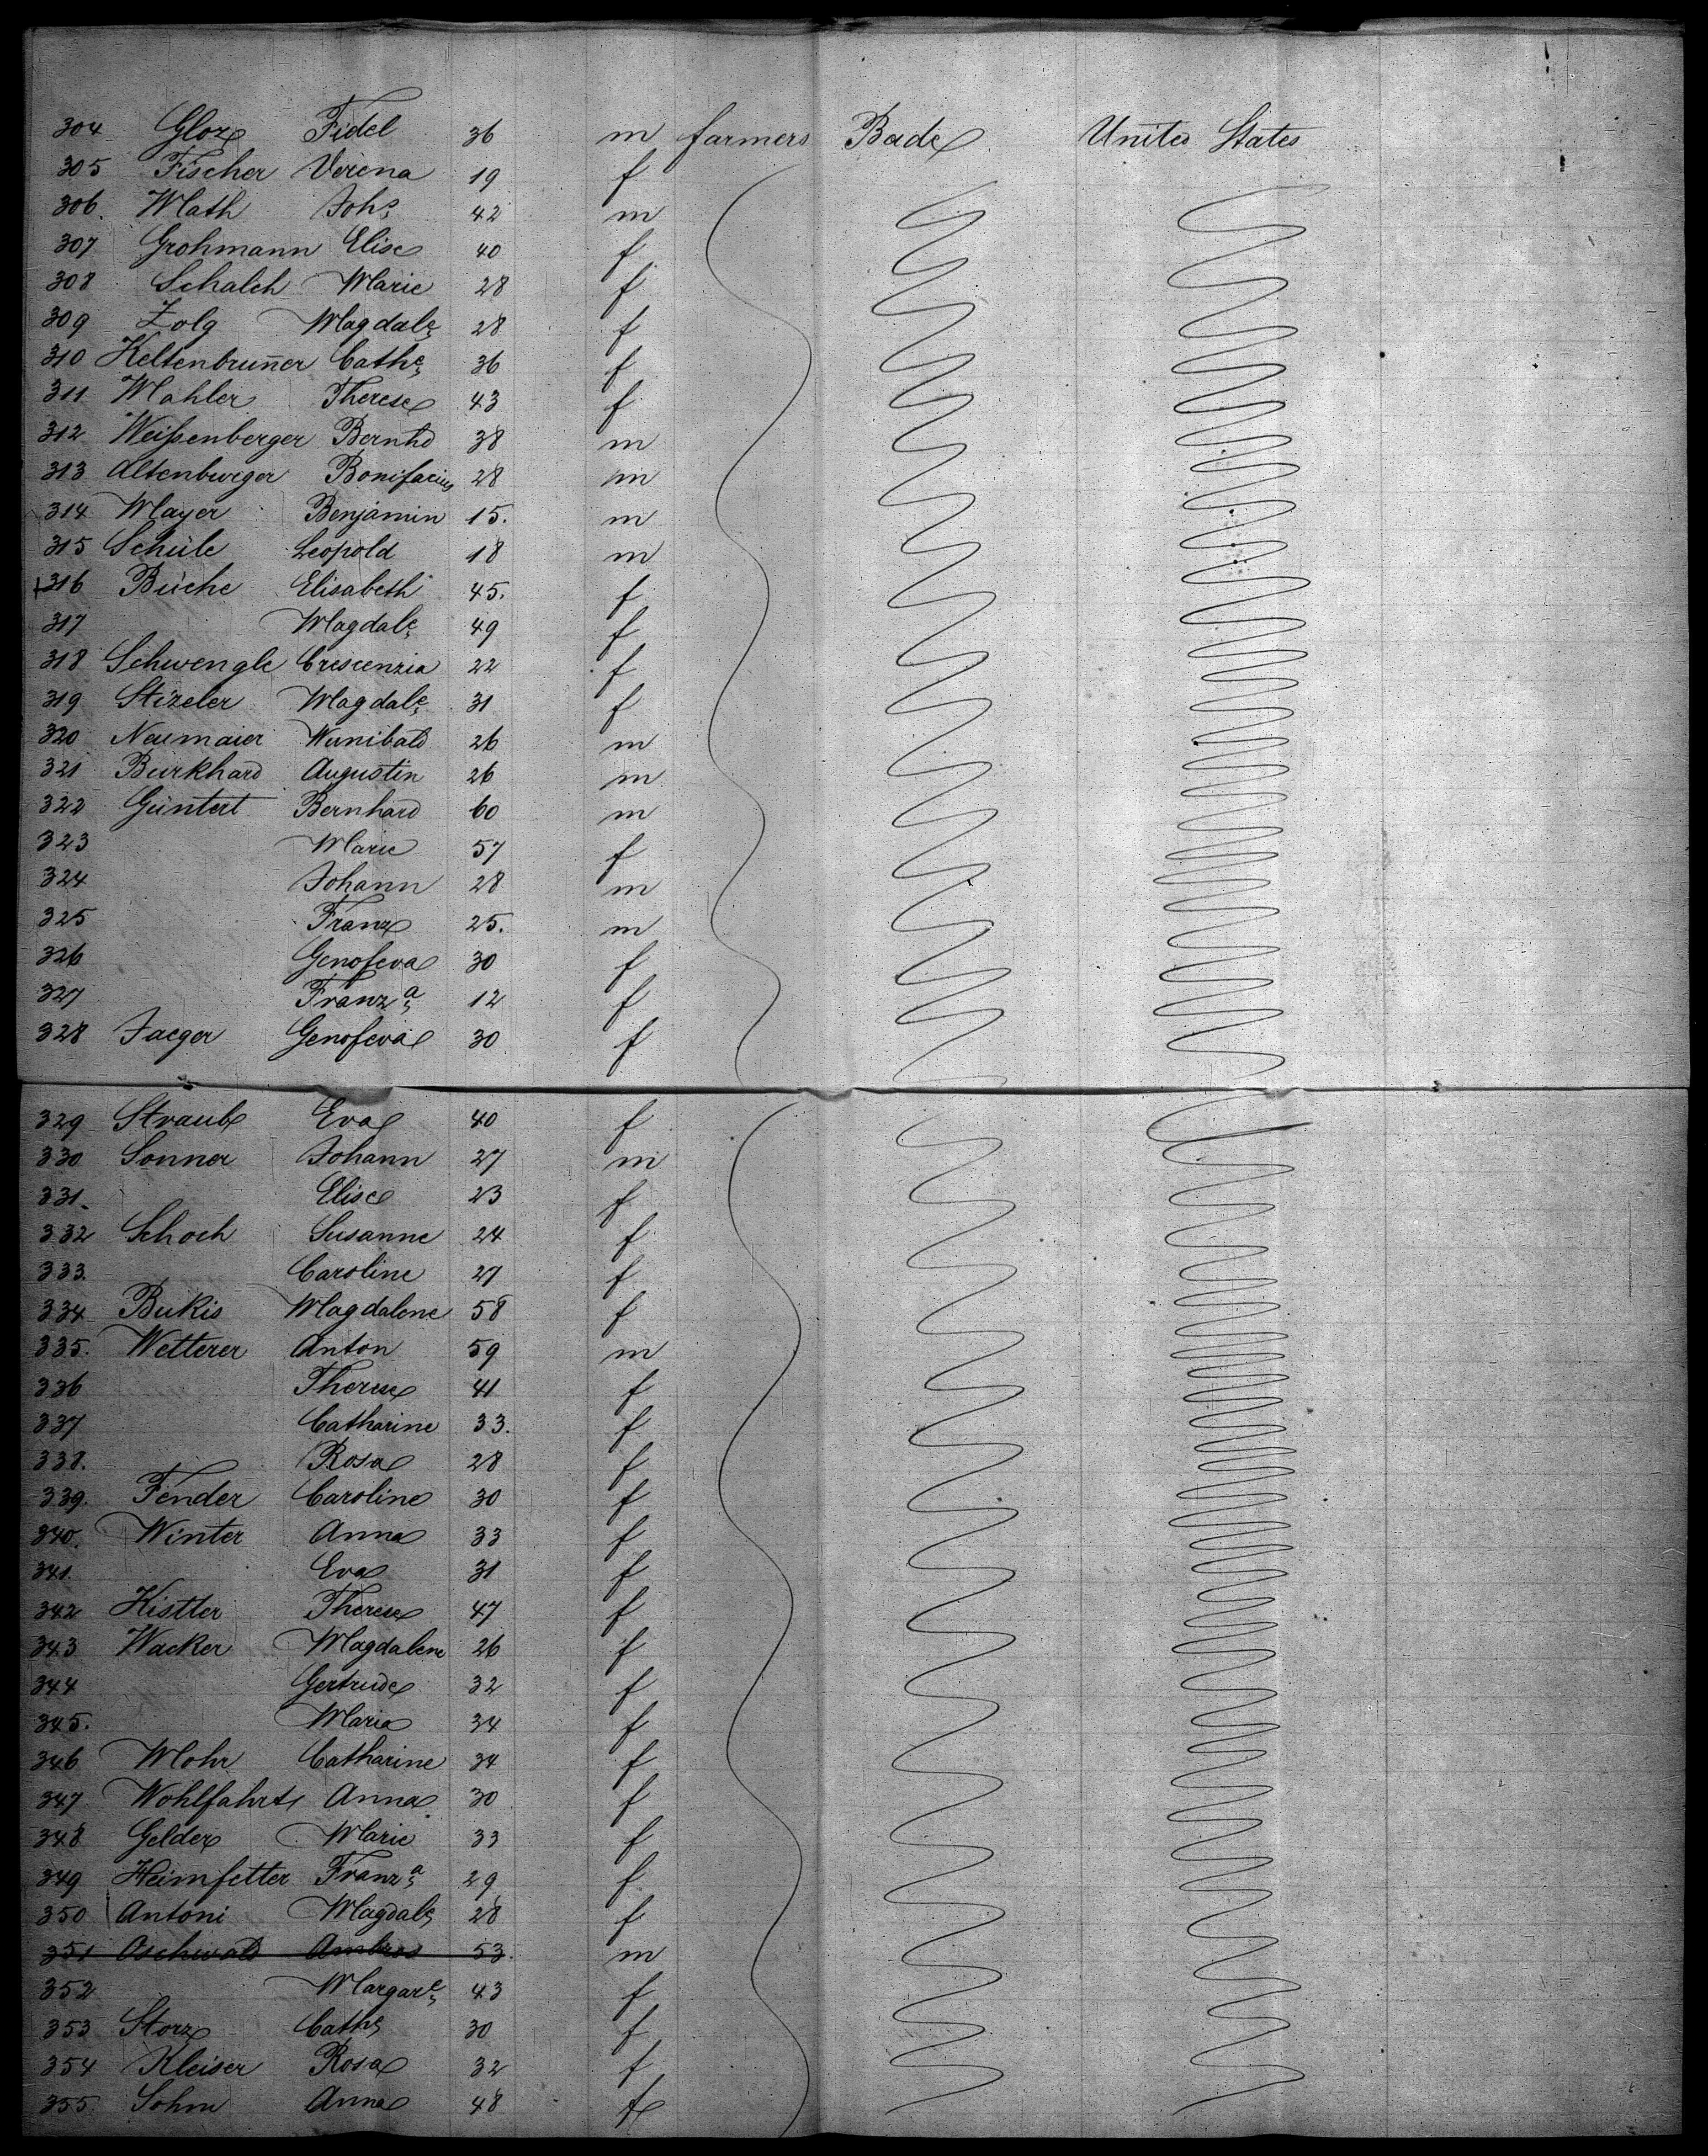 304 Glorz Fidel 36 m farmers Bade United States
305 Fischer Verena 19 f
306. Math Johs 42 m
307 Grohmann Elise 40 f
308 Schalch Marie 28 f
309 Zolg Magdale 28 f
310 Keltenbrun̄er Cathe 36 f
311 Mahler Therese 43 f
312 Weißenberger Bernhd 38 m
313 Altenburger Bonifacius 28 m
314 Mayer Benjamin 15. m
315 Schüle Leopold 18 m
316 Büche Elisabeth 45. f
317 Magdale 49 f
318 Schwengle Crescenzia 22 f
319 Stizeler Magdale 31 f
320 Neumaier Wunibald 26 m
321 Burkhard Augustin 26 m
322 Güntert Bernhard 60 m
323 Marie 57 f
324 Johann 28 m
325 Franz 25. m
326 Genofeva 30 f
327 Franza 12 f
328 Jaeger Genofeva 30 f
329 Straub Eva 40 f
330 Sonner Johann 27 m
331. Elise 23 f
332 Schoch Susanne 24 f
333. Caroline 27 f
334 Bukis Magdalene 58 f
335. Wetterer Anton 59 m
336 Therese 41 f
337 Catharine 33. f
338. Rosa 28 f
339. Fender Caroline 30 f
340. Winter Anna 33 f
341. Eva 31 f
342 Kistler Therese 47 f
343 Wacker Magdalene 26 f
344 Gertrude 32 f
345. Maria 34 f
346 Mohr Catharine 34 f
347 Wohlfahrt Anna 30 f
348 Gelder Marie 33 f
349 Heimfetter Franza 29 f
350 Antoni Magdale 28 f
351 Oschwald Ambros 53. m
352 Margare 43 f
353 Storz Cathe 30 f
354 Kleiser Rosa 32 f
355. Sohm Anna 48 f